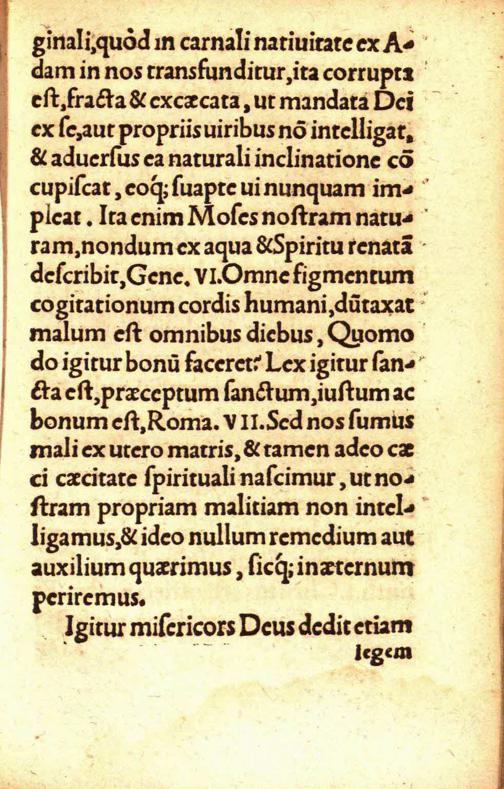 ginali,quòd in carnali natiuitate ex A-
dam in nos transfunditur,ita corrupta
est,fracta & excæcata, ut mandata Dei
ex se,aut propriis uiribus nõ intelligat,
& aduersus ea naturali inclinatione cõ
cupiscat, eoq́; suapte ui nunquam im-
pleat. Ita enim Moses nostram natu-
ram,nondum ex aqua &Spiritu renatã
describit,Gene. VI.Omne figmentum
cogitationum cordis humani,dũtaxat
malum est omnibus diebus, Quomo
do igitur bonũ faceret? Lex igitur san-
cta est,præceptum sanctum,iustum ac
bonum est,Roma. VII. Sed nos sumus
mali ex utero matris, & tamen adeo cæ
ci cæcitate spirituali nascimur, ut no-
stram propriam malitiam non intel-
ligamus,& ideo nullum remedium aut
auxilium quærimus, sicq́; in æternum
periremus.
Igitur misericors Deus dedit etiam
legem